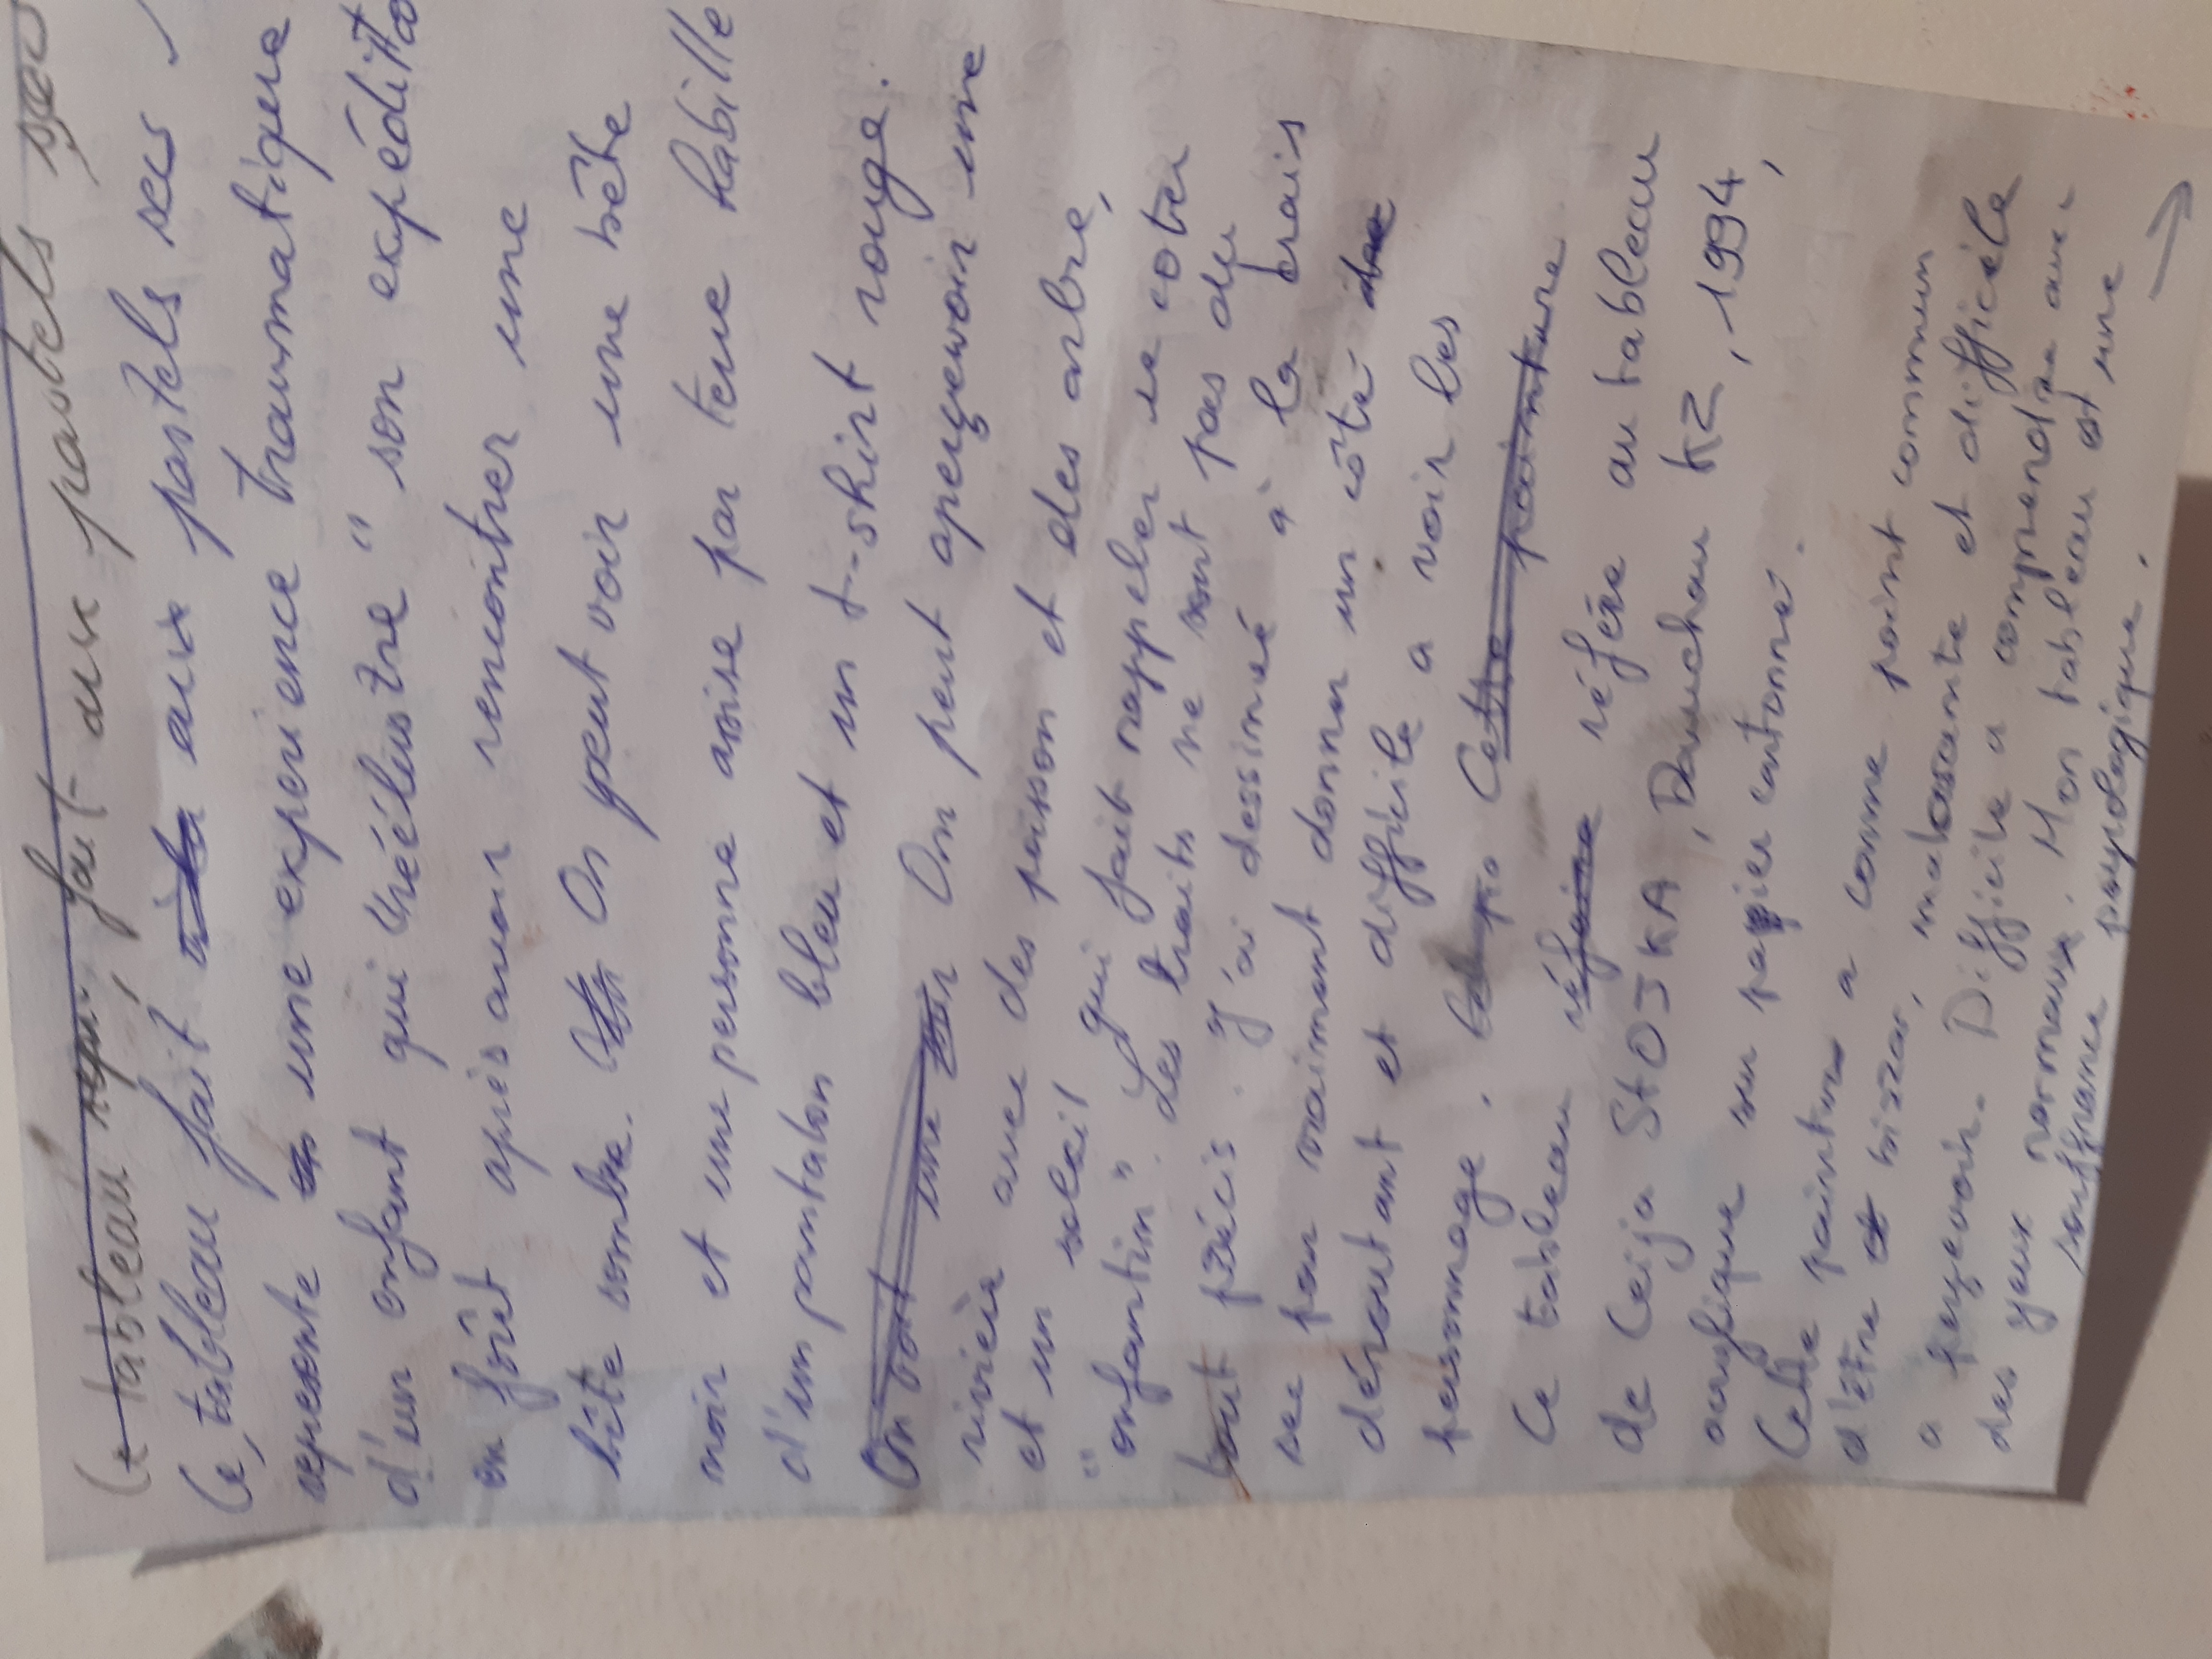 Ce tableau, fait aux pastels sec
Ce tableau fait aux pastels secs,
represente une experience traumatique
d'un enfant qui "réélustre" son expédition
en fôret après avoir rencontrer une
bête sombre. On peut voir une bête
noir et une personne assise par terre habille
d'un pantalon bleu et un t-shirt rouge.
On voit une On peut aperçuevoir une
rivière avec des poisson et des arbre,
et un soleil qui fait rappeler se coter
"enfantin". Les traits ne sont pas du
tout précis. J'ai dessineé à la frais
pour vraimant donner un côté
déroutant et difficile a voir les
personnage. Cette peinture
Ce tableau réfère au tableau
de Ceija StOJKA, Dauchau KZ, 1994,
acrylique sur papier cartonné.
Cette peinture a comme point commun
d'être bizzar, malaisante et difficile
a perçevoir. Difficile a comprendre avec
des yeux normaux. Mon tableau est une
souffrance psycologique.
→